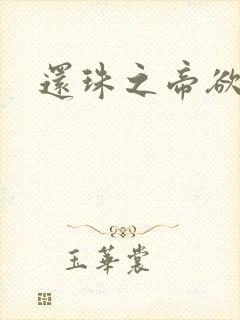 還珠之帝欲
玉華裳